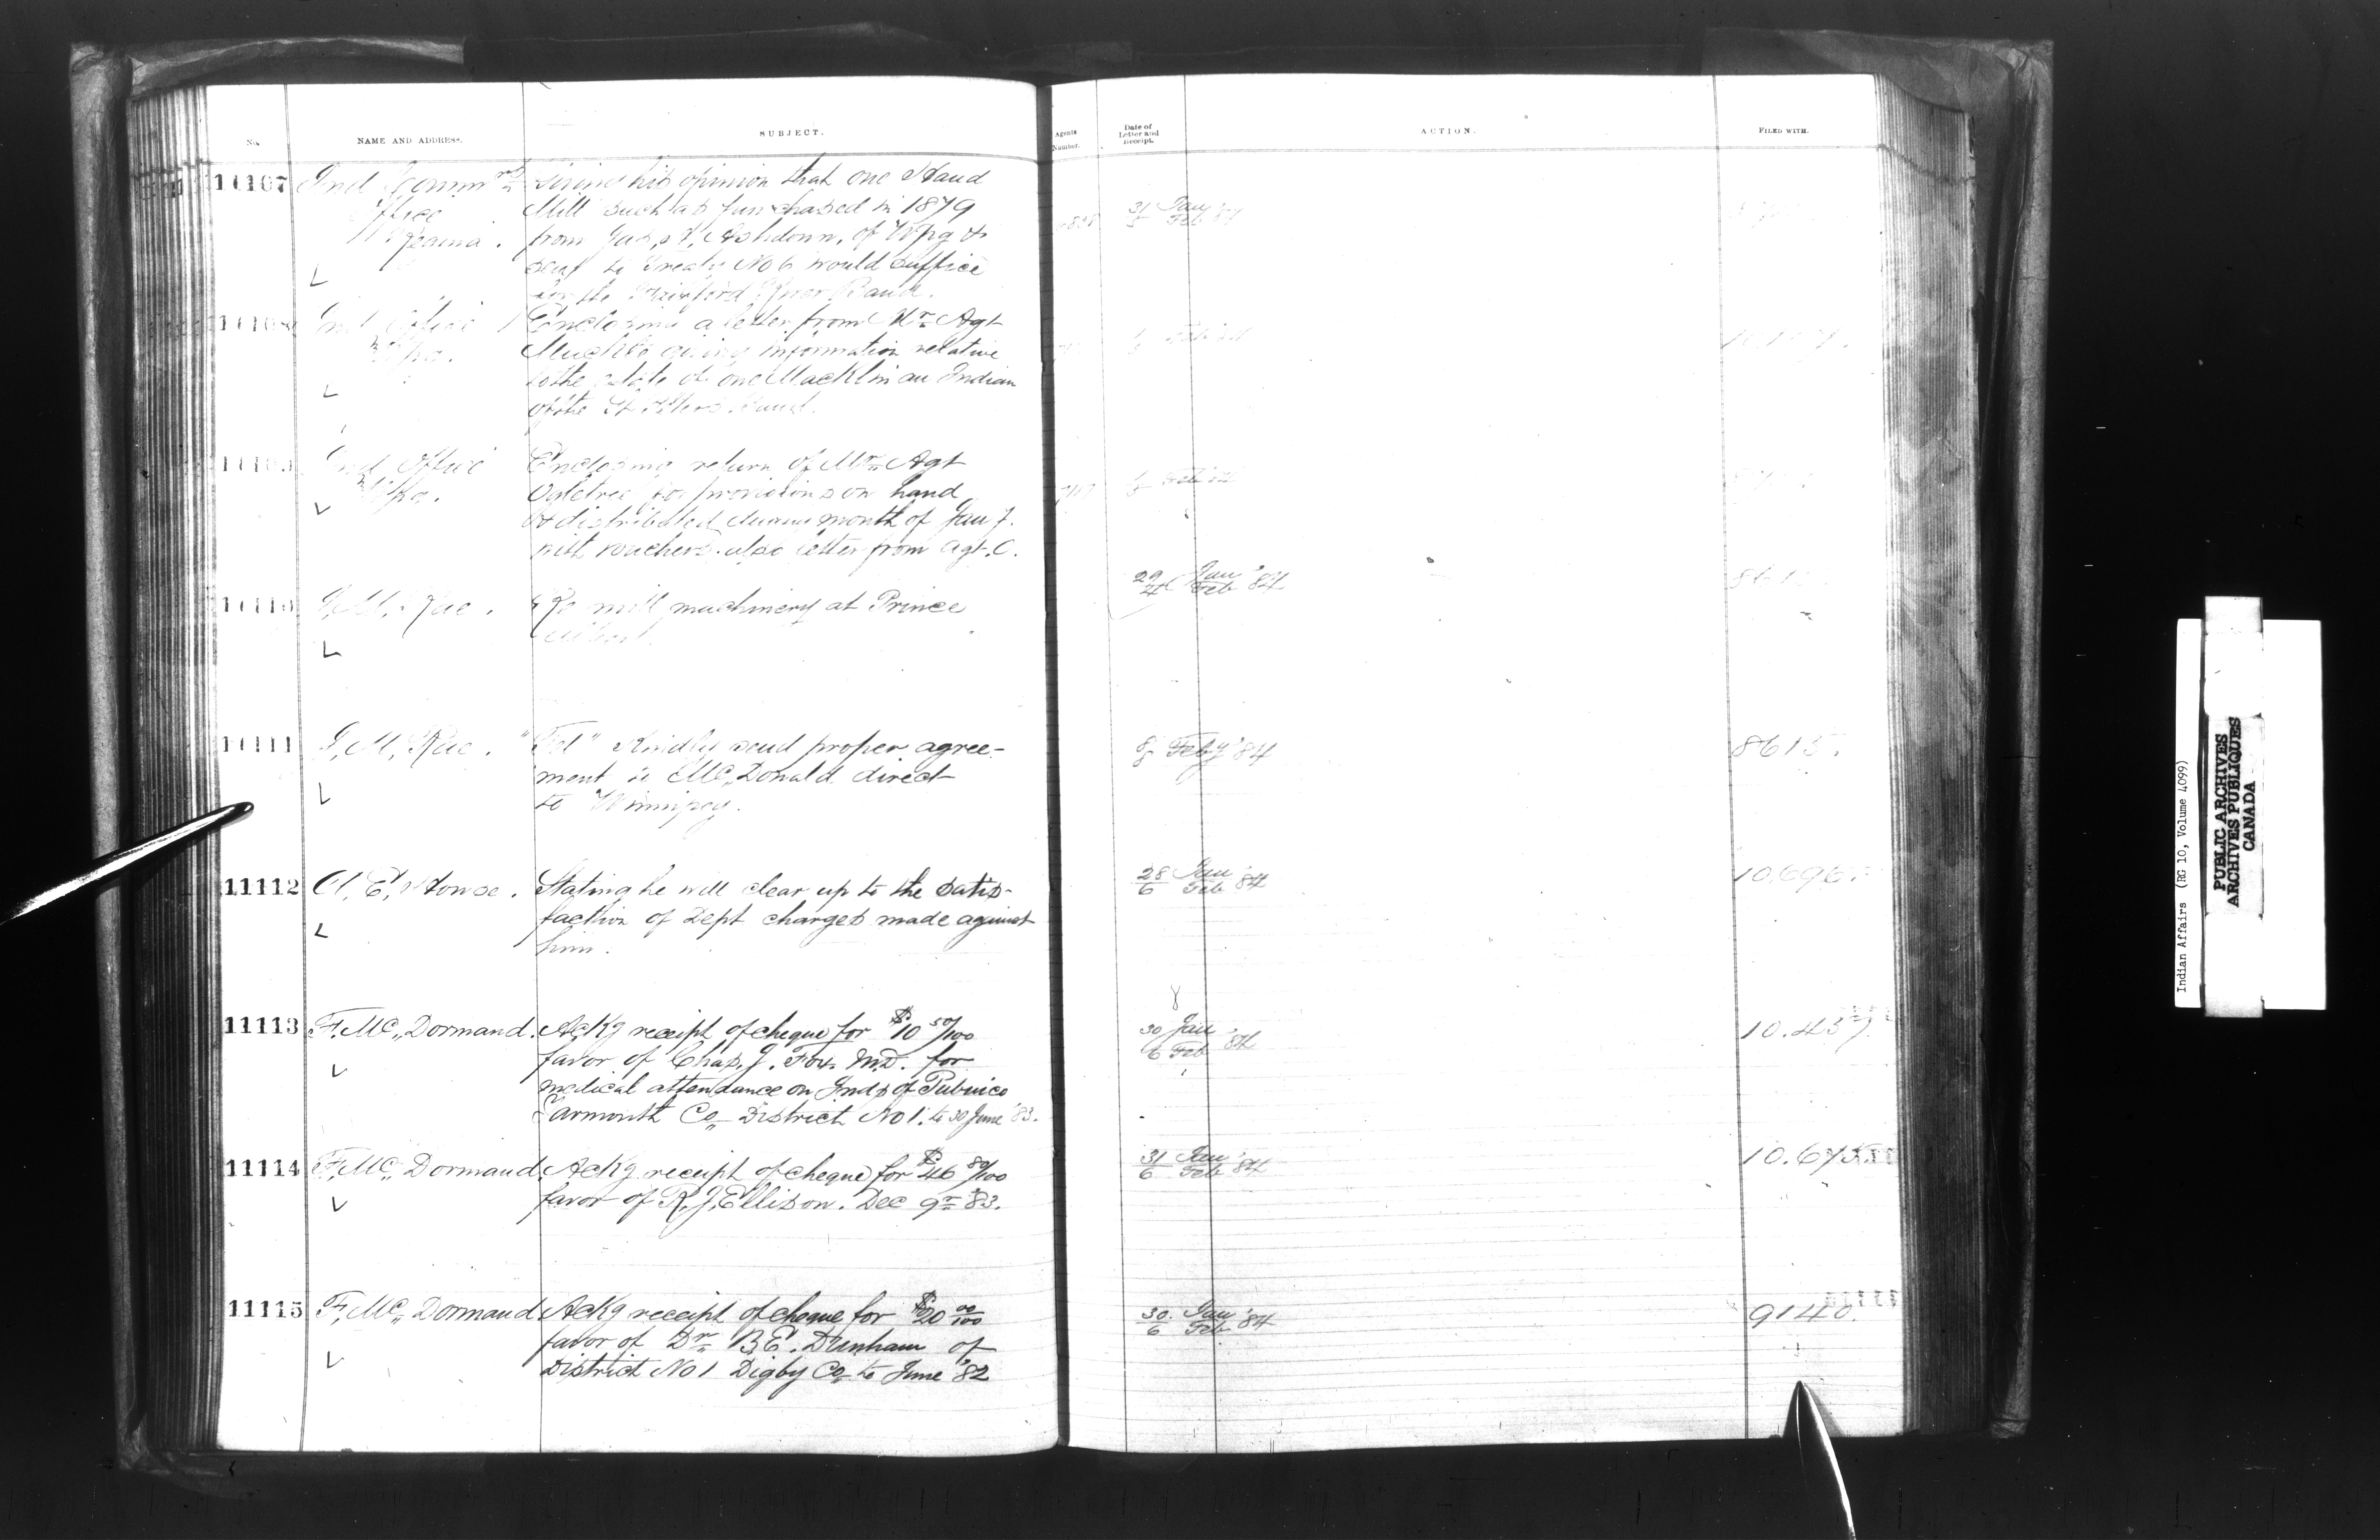 No.
NAME AND ADDRESS.
SUBJECT.
Agents
Number.
Date of
Letter and
Receipt.
ACTION.
FILED WITH.
11107
Ind Commrs
Office
Regina.
Giving his opinion that one Hand
Mill such as purchased in 1879
from Jas, H, Ashdown, of Wpg &
sent to Treaty No 6 would suffice
for the Fairford River Band.
31 Jan
Feb '84
11108
Ind Office
Wpg.
Enclosing a letter from Mr Agt
Muckle giving information relative
to the estate of one Macklin an Indian
of the St Peters Band.
11109
Ind Office
Wpg.
Enclosing return of Mr Agt
Ogletree for provisions on hand
& distributed during month of Jany.
with vouchers. also letter from Agt. O.
11110
J, M, Rae.
Re mill machinery at Prince
Albert.
29 Jan
4 Feb '84
11111
J, M, Rae.
"Tel" Kindly send proper agree-
ment to McDonald direct
to Winnipeg.
Feby '84
8615.
11112
A, E, Howse.
Stating he will clear up to the satis-
faction of Dept charges made against
him.
28 Jan
6 Feb '84
10.696.
11113
F, Mc, Dormand.
Ackg receipt of cheque for $10 50/100
favor of Chas, J. Fox. M.D. for
medical attendance on Inds of Pubnico
Yarmouth Co, District No 1. to 30 June '83.
30 Jan
6 Feb '84
10.457.
11114
F, Mc, Dormand.
Ackg receipt of cheque for $46 80/100
favor of R, J, Ellison. Dec 9r '83.
31 Jan
6 Feb '84
10.675.
11115
F, Mc, Dormand
Ackg receipt of cheque for $20 00/100
favor of Dr B, E. Dunham of
District No 1 Digby Co, to June '82
30. Jan
6 Feb '84
9140.
Indian Affairs (RG 10, Volume 4099)
PUBLIC ARCHIVES
ARCHIVES PUBLIQUES
CANADA